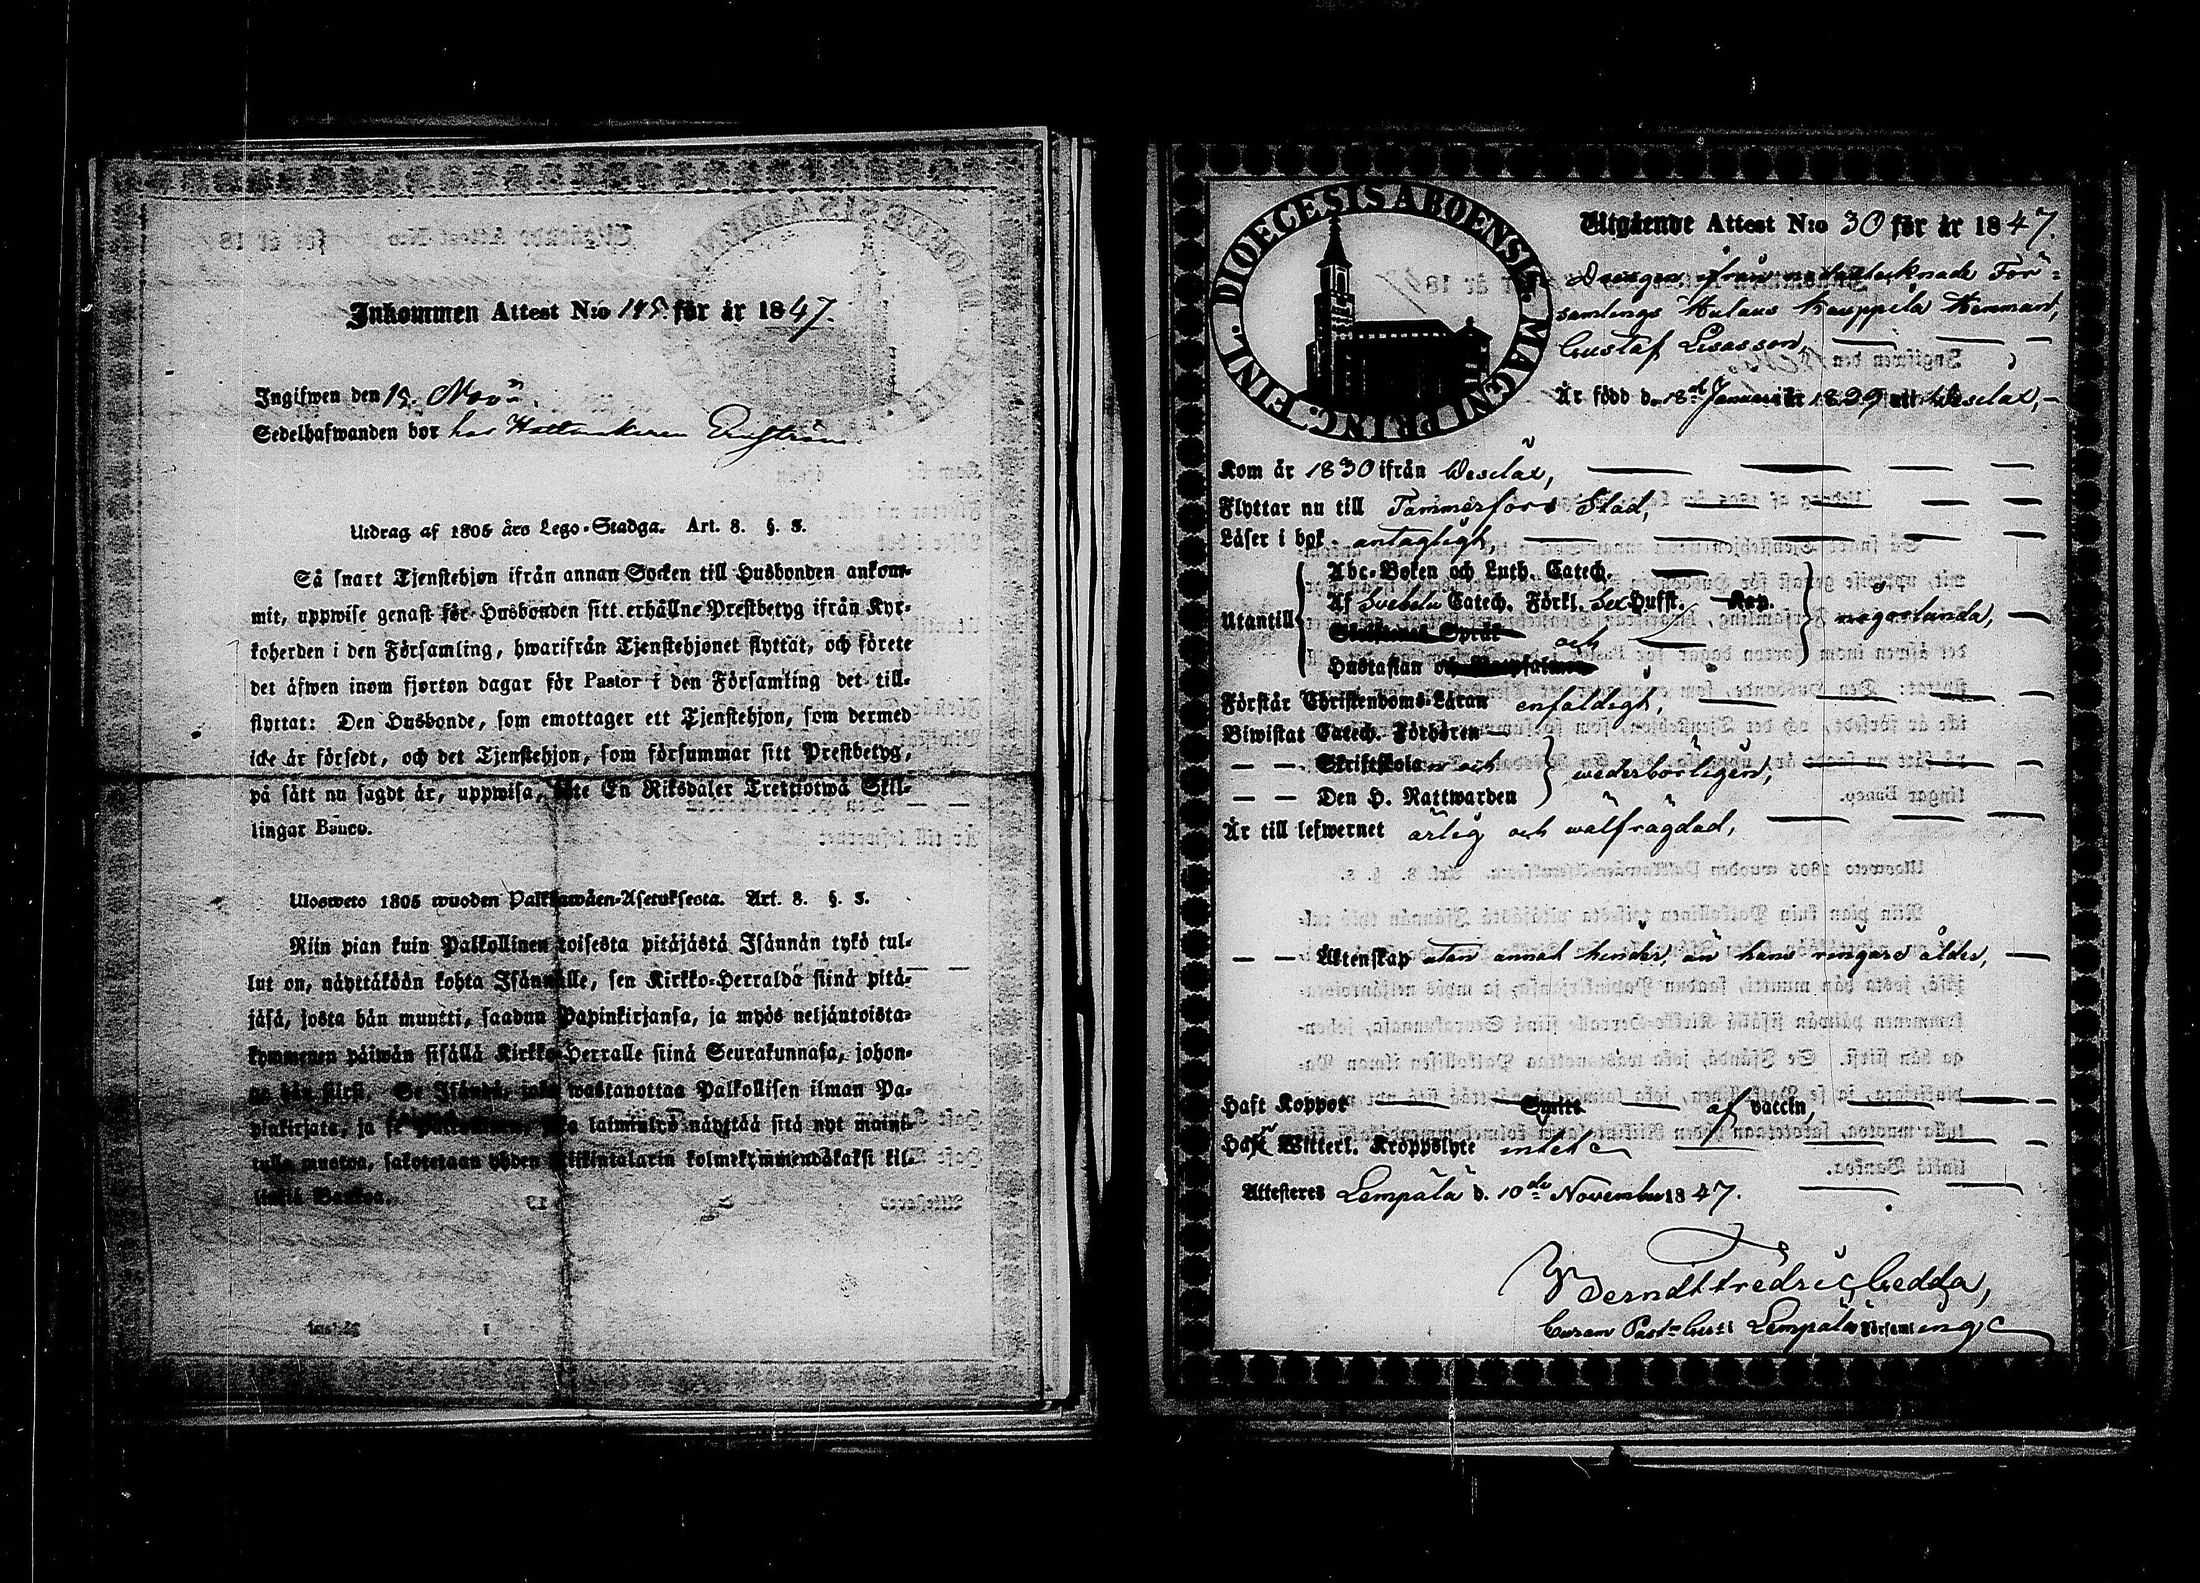 Inkommen Attest N:o 118. för år 1847.
Ingifwen den 12. Nov:
Sedelhafwanden bor hos Hattmakaren
Utdrag af 1805 års Lego-Stadga. Art. 8. §. 3.
Så snart Tjenstehjon ifrån annan Socken till Husbonden ankom-
mit, uppwise genast för Husbonden sitt erhållne Prestbetyg ifrån Kyr-
koherden i den Församling, hwarifrån Tjenstehjonet flyttat, och förete
det äfwen inom fjorton dagar för Pastor i den Församling det till-
flyttat: Den Husbonde, som emottager ett Tjenstehjon, som dermed
icke är försedt, och det Tjenstehjon, som försummar sitt Prestbetyg,
på sätt nu sagdt är, uppwisa, böte En Riksdaler Trettiotwå Skil-
lingar Banco.
Ulosweto 1805 wuoden Palkkawäen-Asetuksesta. Art. 8. §. 3.
Niin pian kuin Palkollinen toisesta pitäjästä Isännän tykö tul-
lut on, näyttäköön kohta Isännälle, sen Kirkko-Herralda siinä pitä-
jäsä, josta hän muutti, saadun Papinkirjansa, ja myös neljäntoista-
kymmenen päiwän sisällä Kirkko-Herralle siinä Seurakunnasa, johon-
ga hän siirsi. Se Isändä, joka wastanottaa Palkollisen ilman Pa-
pinkirjata, ja se Palkollinen, joka laiminlyö näyttää sitä nyt maini-
tulla muotoa, sakotetaan yhden Riikintalarin kolmekymmendäkaksi kil-
lingiä Bankoa.
DIOECESIS ABOENSIS. MAGNI PRINC. FINL.
Utgående Attest N:o 30 för år 1847.
Drängen ifrån nedantecknade För-
samlings Hulaus Kauppila Hemman,
Gustaf Esasson,
Är född d. 18de Januari år 1829 uti Wesilax,
Kom år 1830 ifrån Wesilax,
Flyttar nu till Tammerfors Stad,
Läser i bok antagligt,
Abc-Boken och Luth. Catech.
Af Svebelii Catech. Förkl. Sex Hufst. Kap.
Utantill någorlunda,
Skriftenes Språk och
Hustaflan
Förstår Christendoms-Läran enfaldigt,
Biwistat Catech. Förhören
— — Skriftskolan och wederbörligen,
— — Den H. Nattwarden
Är till lefwernet ärlig och wälfrägdad,
— — Äktenskap utan annat hinder, än hans ringare ålder,
Haft Koppor Smitt af vaccin,
Haft Witterl. Kroppslyte intet
Attesteras Lempälä d. 10de November 1847.
Berndt Fredric Gedda,
Curam Past:s Ger:s i Lempälä Församling